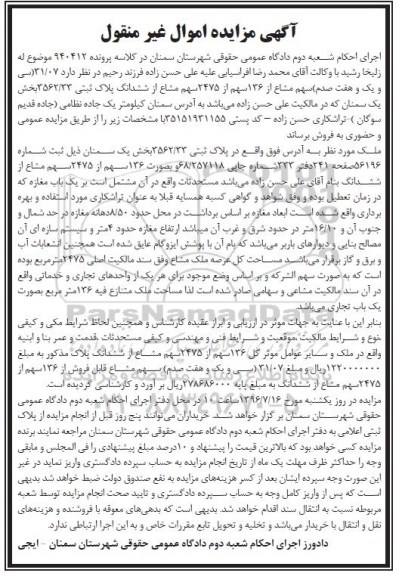 آگهی مزایده اموال غیر منقول
اجرای احکام شعبه دوم دادگاه عمومی حقوقی شهرستان سمنان در کلاسه پرونده ۹۴۰۴۱۲ موضوع له
زلیخا رشید با وکالت آقای محمد رضا افراسیابی علیه علی حسن زاده فرزند رحیم در نظر دارد ۳۱/۰۷(سی
و یک و هفت صدم)سهم مشاع از ۱۳۶سهم از ۲۴۷۵سهم مشاع از ششدانگ پلاک ثبتی ۳۵۶۲/۳۳بخش
یک سمنان که در مالکیت علی حسن زاده می‌باشد به آدرس سمنان کیلومتر یک جاده نظامی (جاده قدیم
سوگان )-تراشکاری حسن زاده - کد پستی ۳۵۱۵۱۹۳۱۱۵۵با مشخصات زیر را از طریق مزایده عمومی
و حضوری به فروش برساند
ملک مورد نظر به آدرس فوق واقع در پلاک ثبتی ۳۵۶۲/۳۳بخش یک سمنان ذیل ثبت شماره
۵۶۱۹۶صفحه ۲۴۱دفتر ۳۳۳شماره چاپی ۶۸/۲۵۷۱۱۸و بصورت ۱۳۶سهم از ۲۴۷۵سهم مشاع از
ششدانگ بنام آقای علی حسن زاده می‌باشد مستحدثات واقع در آن مشتمل است بر یک باب مغازه که
در زمان تعطیل بوده و وفق شواهد و گواهی کسبه همسایه قبلا به عنوان تراشکاری مورد استفاده و بهره
برداری واقع شده است ابعاد مغازه بر اساس برداشت در محل حدود ۸/۵۰دهانه مغازه در حد شمال و
جنوب آن و ۱۶/۱۰متر در حدود شرق و غرب آن میباشد ارتفاع مغازه حدود ۴متر و سیستم سازه ای آن
مصالح بنایی و دیوارهای باربر می‌باشد که بام آن با پوشش ایزوگام عایق شده است همچنین انشعابات آب
و برق و گاز برقرار می‌باشد مساحت کل عرصه ملک مشاع وفق سند مالکیت اصلی ۲۴۷۵مترمربع بوده
است که به صورت سهم الشرکه و بر اساس وضع موجود برای هر یک از واحدهای تجاری و خدماتی واقع
در آن سند مالکیت مشاعی و سهامی صادر شده است لذا مساحت ملک متنازع فیه ۱۳۶متر مربع بصورت
یک باب تجاری می‌باشد.
بنابر این با عنایت به جهات موثر در ارزیابی و ابراز عقیده کارشناس و همچنین لحاظ شرایط مکی و کیفی
نوع و شرایط مالکیت،موقعیت و شرایط فنی و مهندسی و کیفی مستحدثات ،قدمت و عمر بنا و ابنیه
واقع در ملک و سایر عوامل موثر کل ۱۳۶سهم از ۲۴۷۵سهم مشاع از ششدانگ پلاک مذکور به مبلغ
۱۲۲۰۰۰۰۰۰۰ریال و مبلغ ۳۱/۰۷(سی و یک و هفت صدم)سهم مشاع قابل فروش از ۱۳۶سهم از
۲۴۷۵سهم مشاع از ششدانگ به مبلغ پایه ۲۷۸۶۸۶۰۰۰ریال بر آورد و کارشناسی گردیده است.
مزایده در روز یکشنبه مورخ ۱۳۹۶/۷/۱۶ساعت ۱۰ در محل دفتر اجرای احکام شعبه دوم دادگاه عمومی
حقوقی شهرستان سمنان بر گزار خواهد شد. خریداران می‌توانند پنج روز قبل از انجام مزایده از پلاک
ثبتی اعلامی به دفتر اجرای احکام شعبه دوم دادگاه عمومی حقوقی شهرستان سمنان مراجعه نمایند برنده
مزایده کسی خواهد بود که بالاترین قیمت را پیشنهاد و ۱۰درصد مبلغ پیشنهادی را فی المجلس و مابقی
وجه را حداکثر ظرف مهلت یک ماه از تاریخ انجام مزایده به حساب سپرده دادگستری واریز نماید در غیر
این صورت وجه سپرده ایشان بعد از کسر هزینه‌های مزایده به نفع صندوق دولت ضبط خواهد شد بدیهی
است که پس از واریز کامل وجه به حساب سپرده دادگستری و تایید صحت انجام مزایده توسط شعبه
مربوطه نسبت به انتقال سند اقدام خواهد شد. بدیهی است که بدهی‌های معوقه با فروشنده و هزینه‌های
نقل و انتقال با خریدار می‌باشد و تخلیه و تحویل تابع مقررات خاص و به این اجرا ارتباطی ندارد.
دادورز اجرای احکام شعبه دوم دادگاه عمومی حقوقی شهرستان سمنان - ایجی